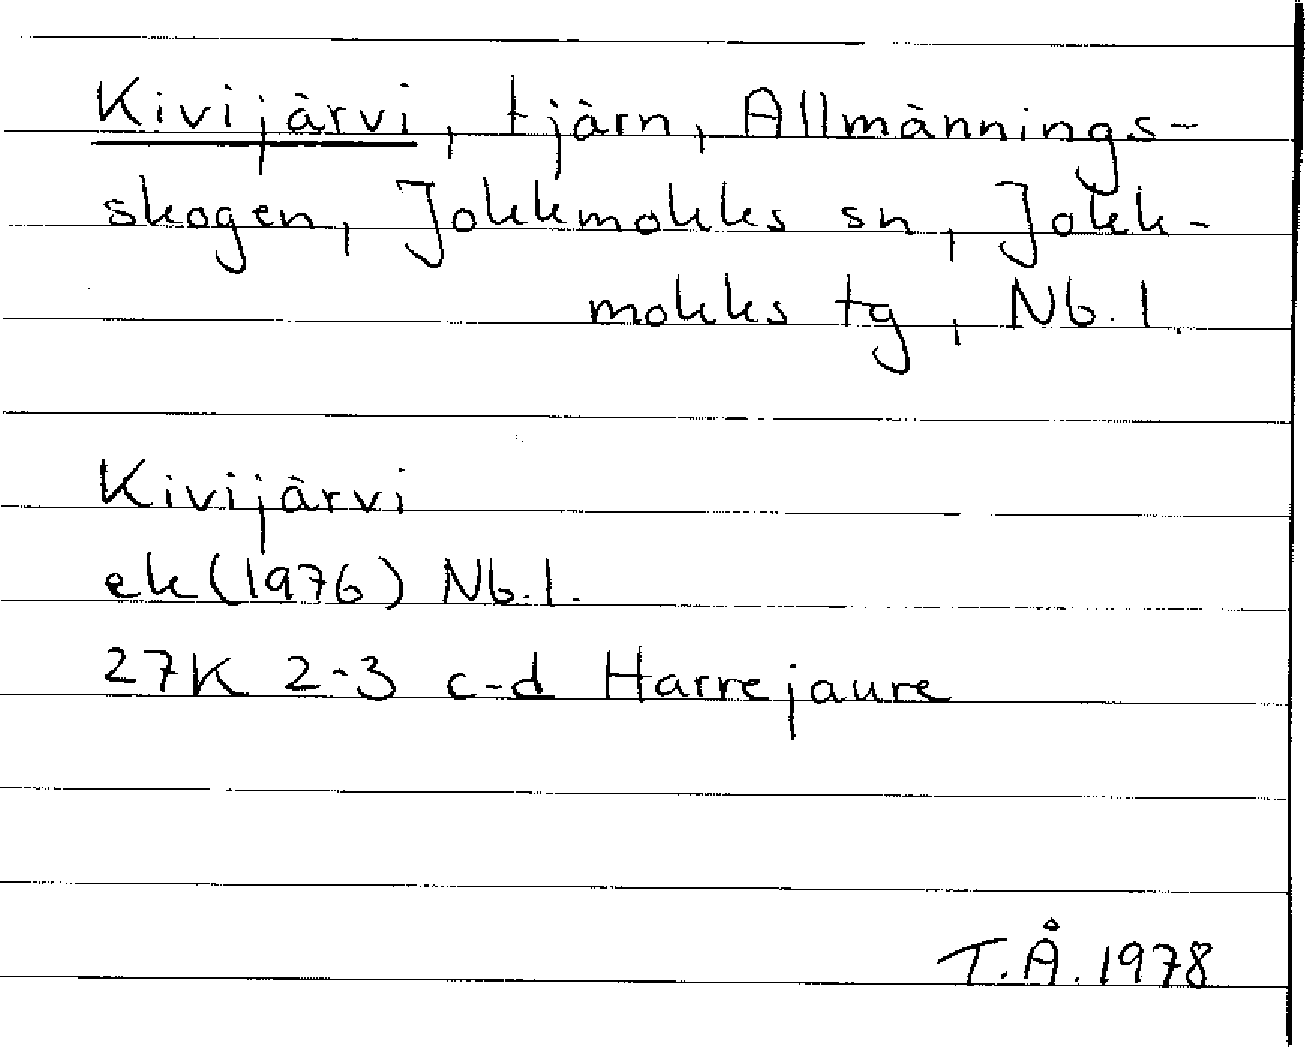 Kivijärvi, tjärn, Allmännings-
skogen, Jokkmokks sn, Jokk-
mokks tg, Nb.l.
Kivijärvi
ek (1976) Nb.l.
27K 2-3 c-d Harrejaure
T.Å. 1978